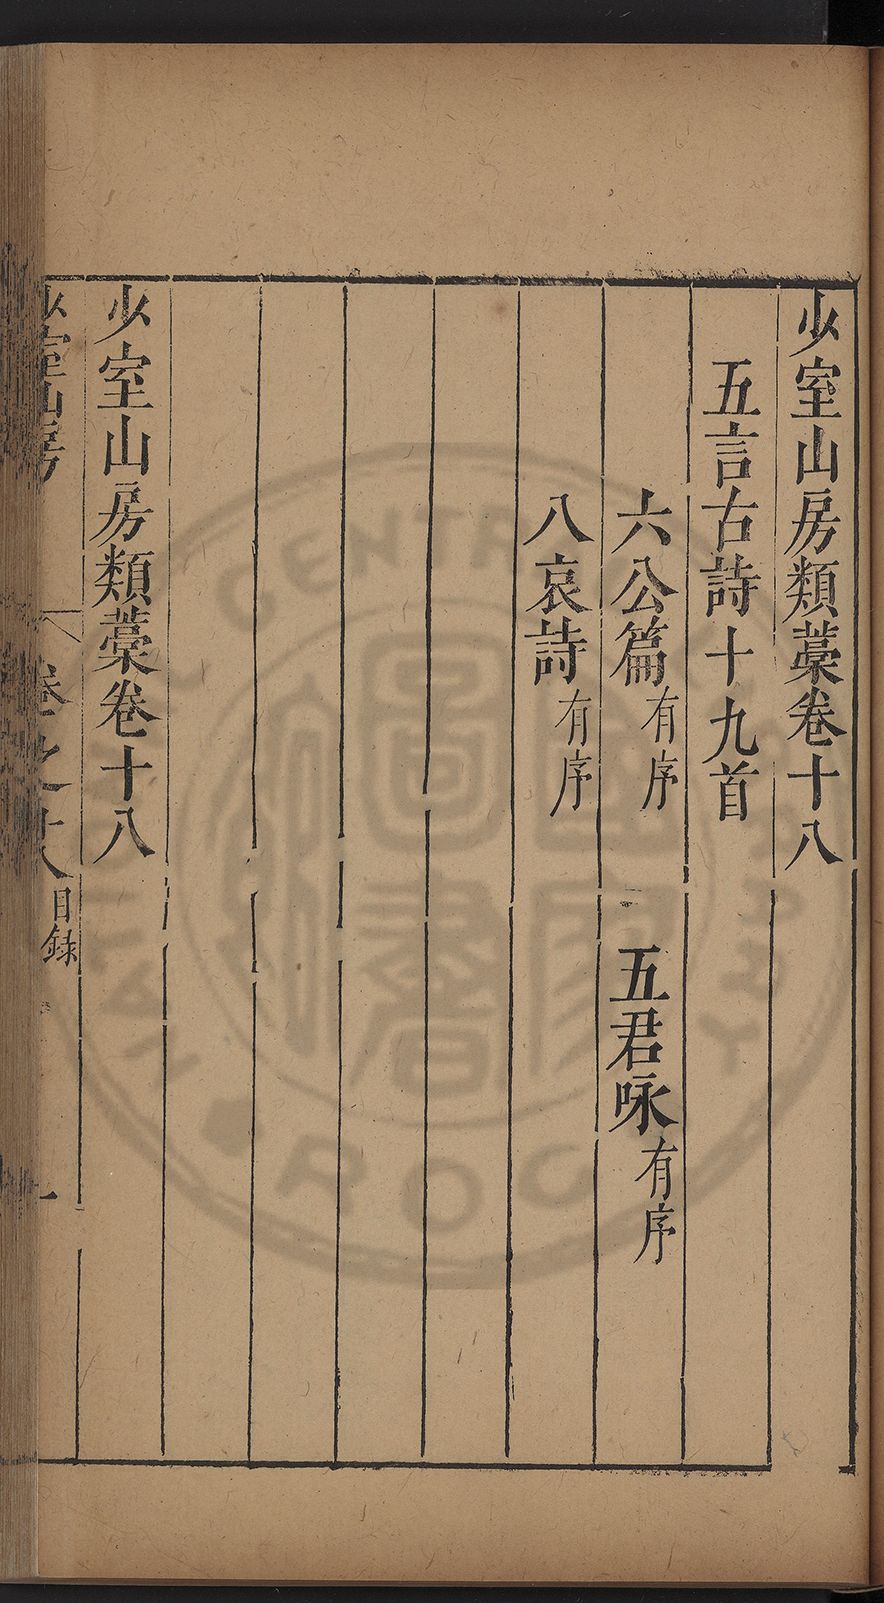 少室山房類藁卷十八
五言古詩十九首
六公篇有序 五君咏有序
八哀詩有序
少室山房類藁卷十八
少室山房 卷之十八目錄 一